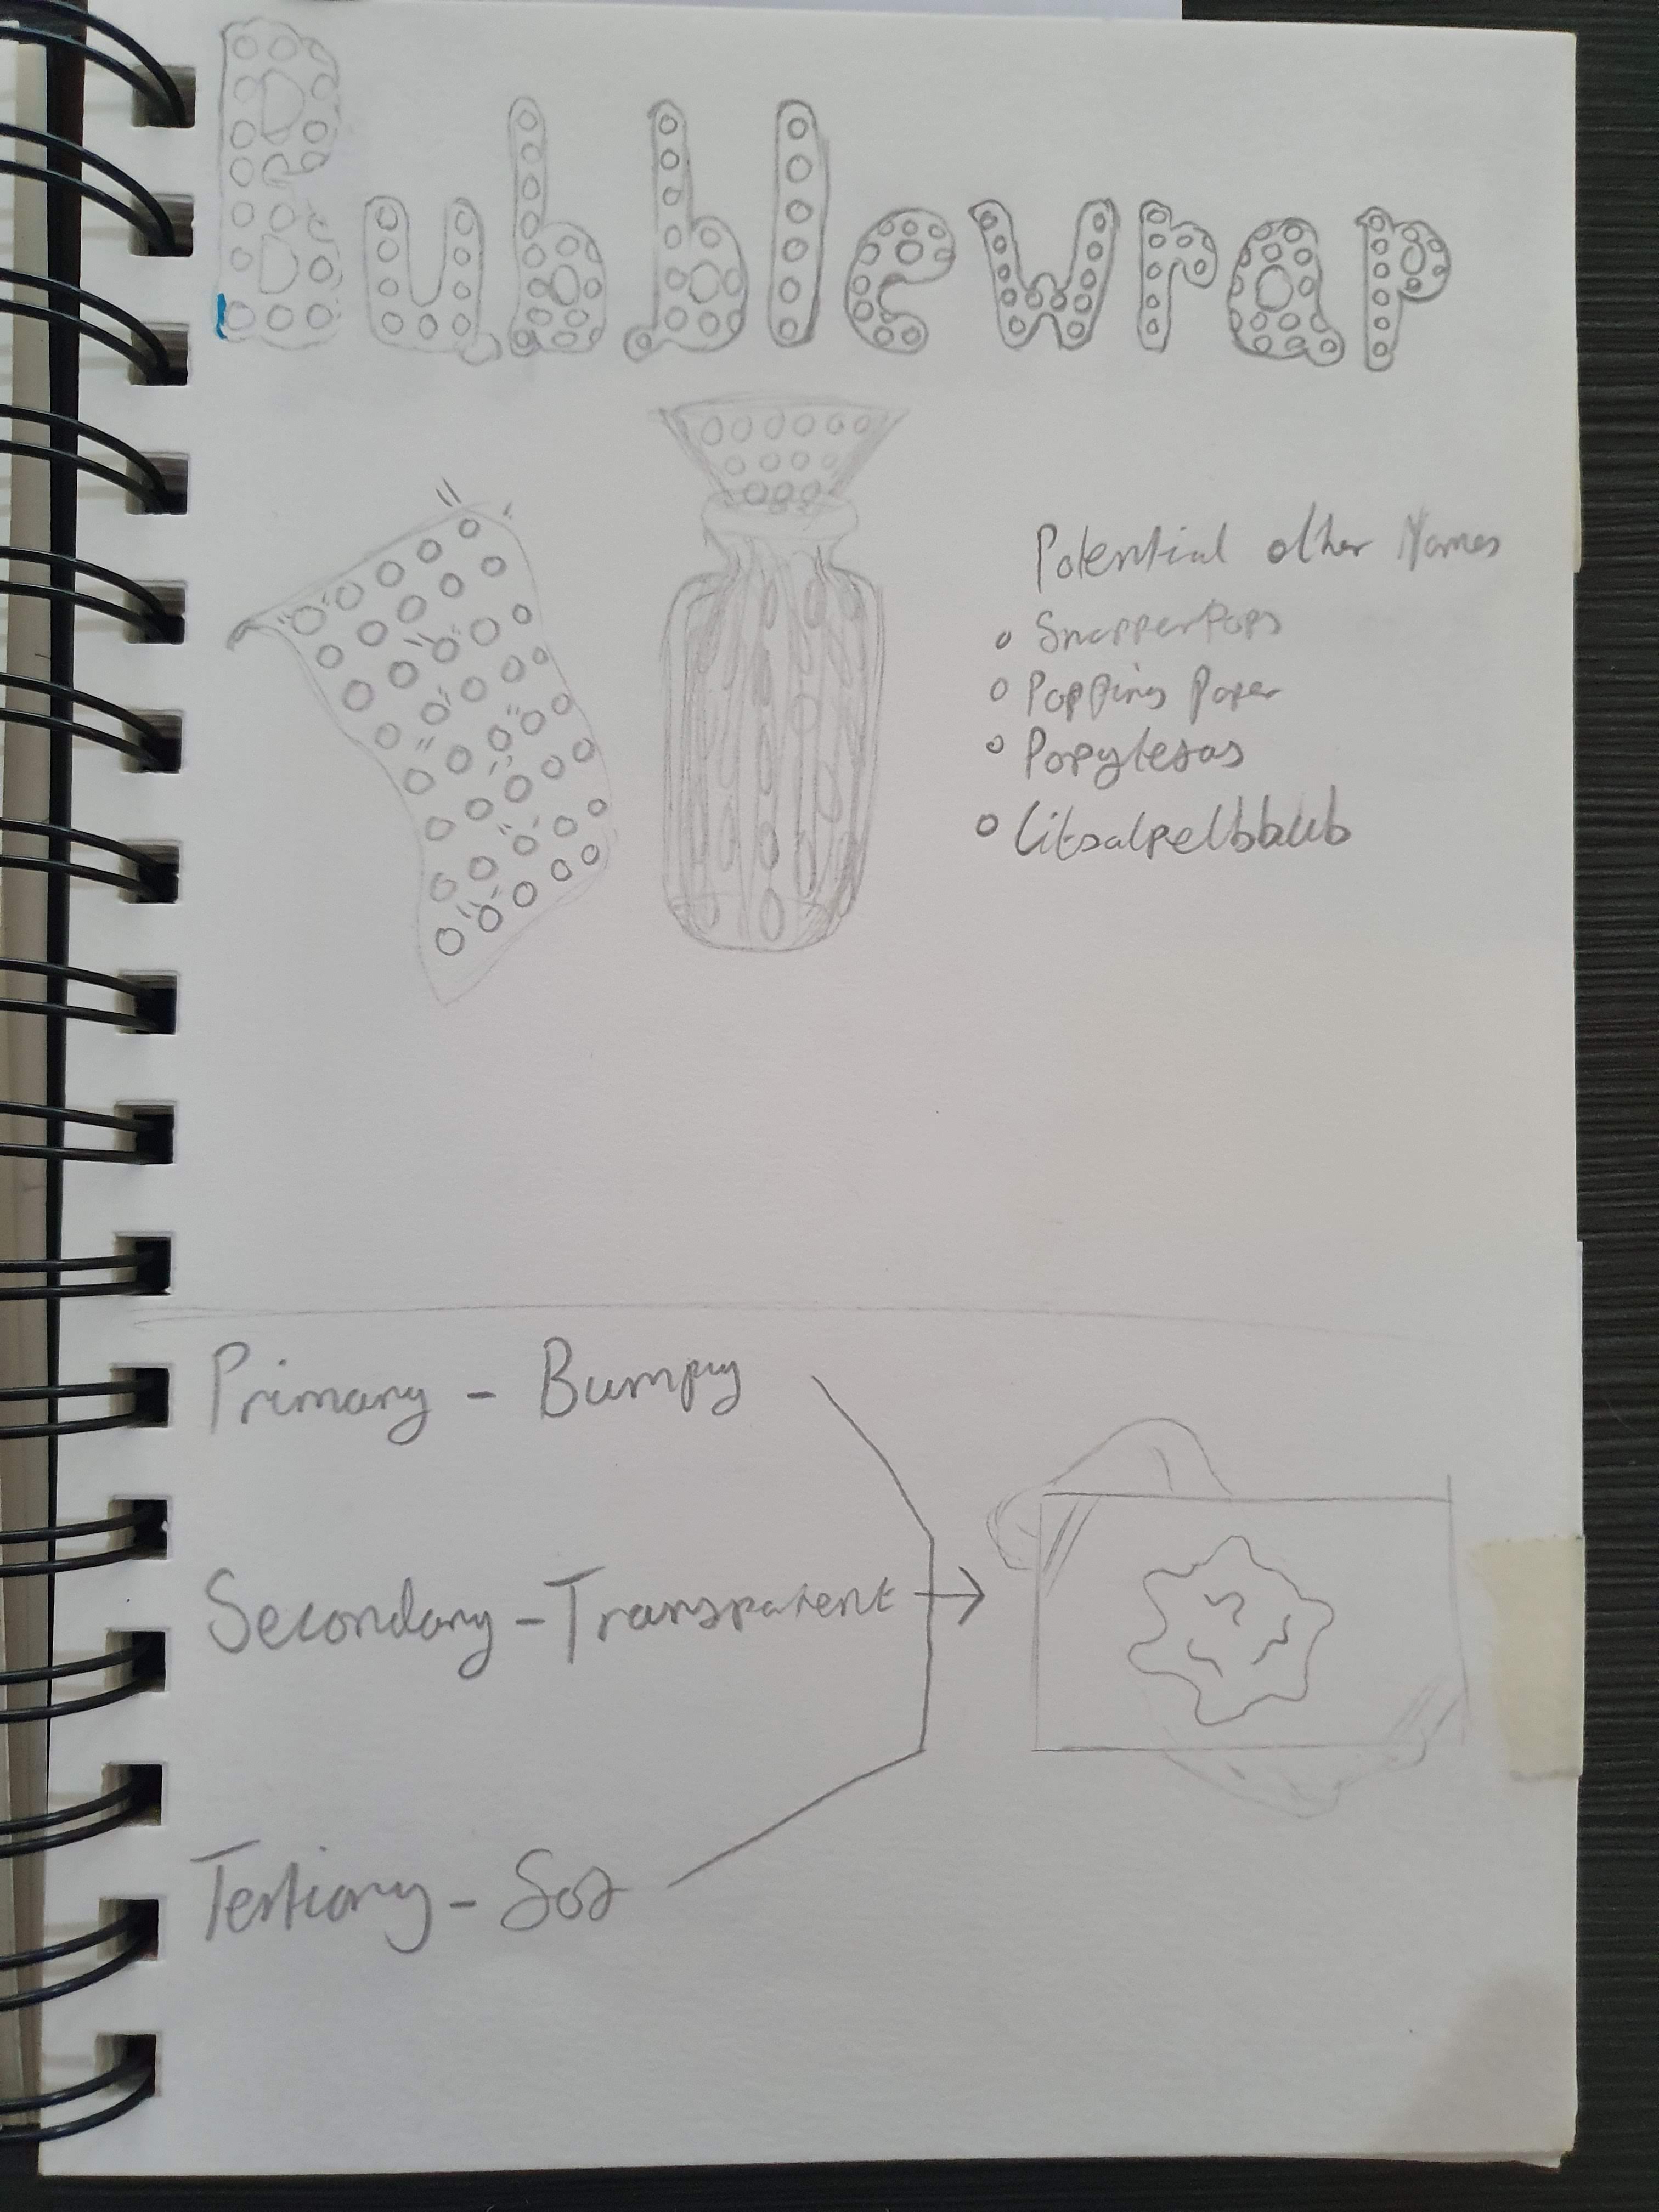 Bubblewrap
Potential other Names
Snapperpops
Popping Paper
Popylesas
Citsalpelbbub
Primary - Bumpy
Secondary - Transparent
Tertiary -